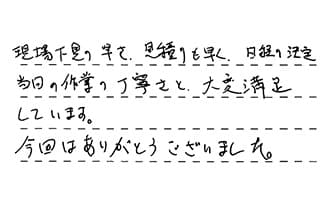 現場下見の早さ、見積りも早く、日程の決定
当日の作業の丁寧さと、大変満足
しています。
今回はありがとうございました。